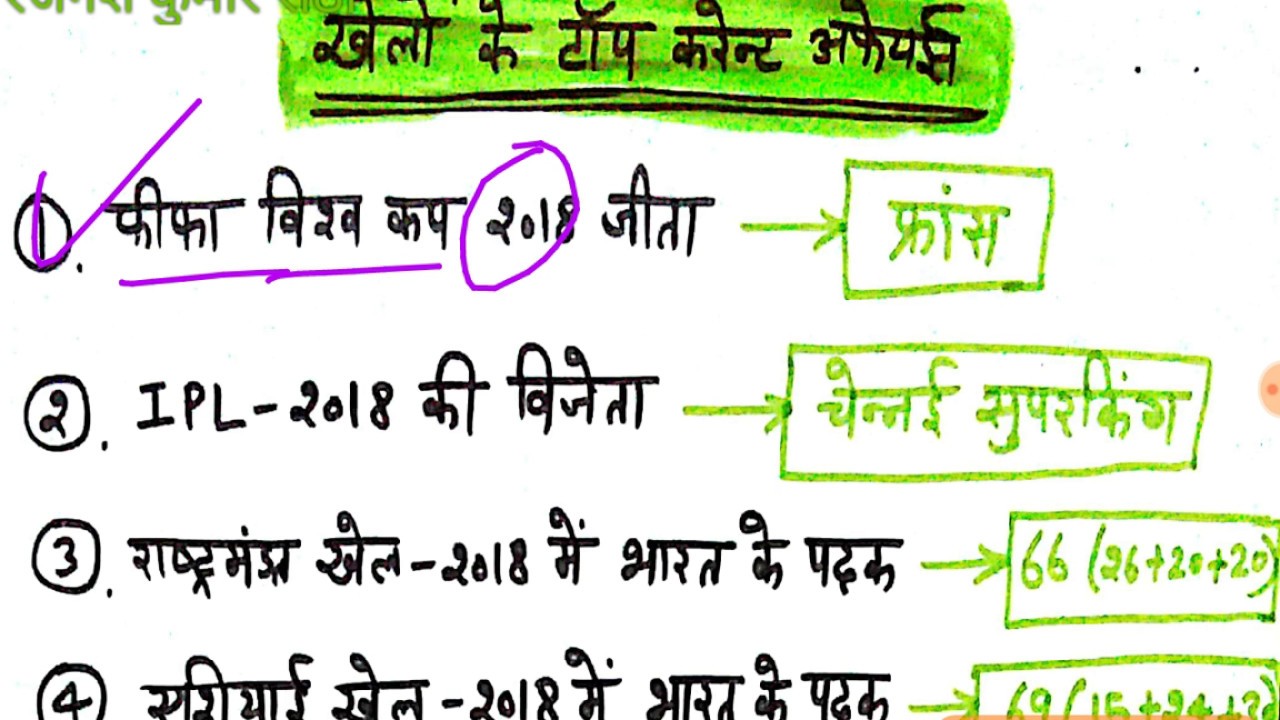 कुमार
खेलों के टॉप करेन्ट अफेयर्स
①. फीफा विश्व कप २०18 जीता → फ्रांस
②. IPL-२०18 की विजेता → चेन्नई सुपरकिंग
③. राष्ट्रमंडल खेल-२०18 में भारत के पदक → 66 (26+20+20)
④ एशियाई खेल-२०18 में भारत के पदक → 69 (15+24+